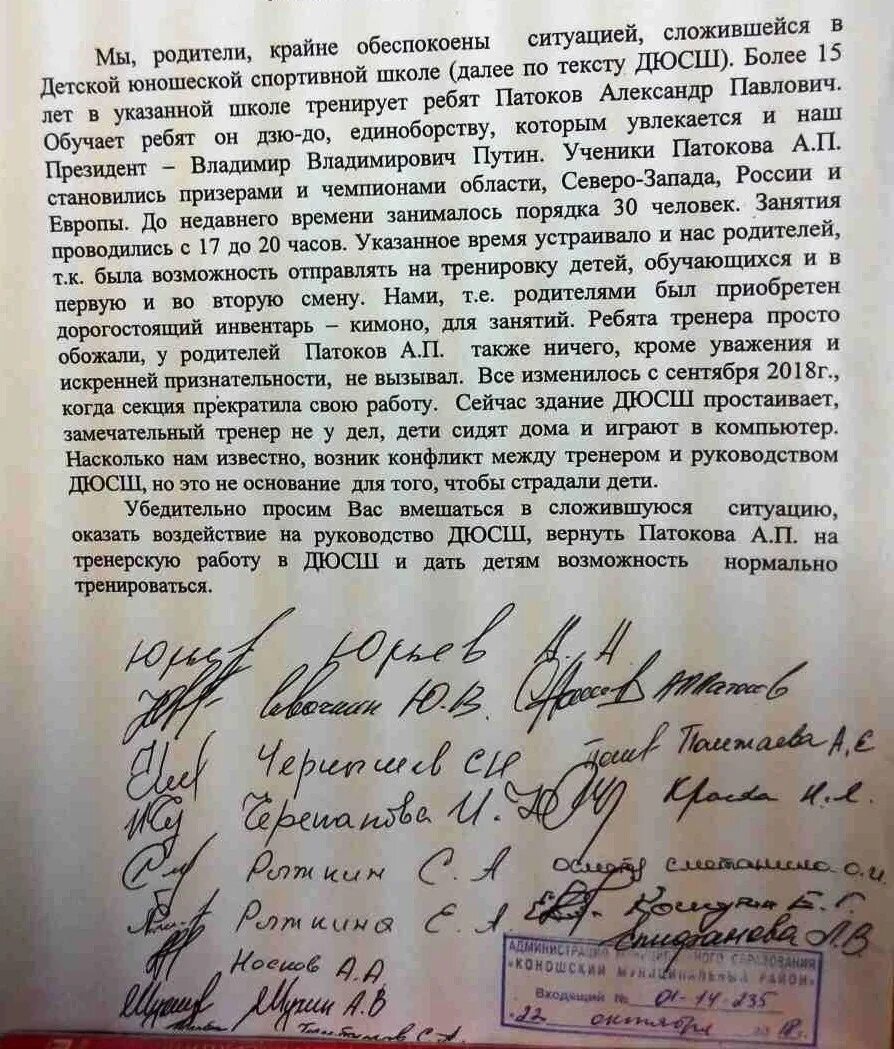 Мы, родители, крайне обеспокоены ситуацией, сложившейся в
Детской юношеской спортивной школе (далее по тексту ДЮСШ). Более 15
лет в указанной школе тренирует ребят Патоков Александр Павлович.
Обучает ребят он дзю-до, единоборству, которым увлекается и наш
Президент – Владимир Владимирович Путин. Ученики Патокова А.П.
становились призерами и чемпионами области, Северо-Запада, России и
Европы. До недавнего времени занималось порядка 30 человек. Занятия
проводились с 17 до 20 часов. Указанное время устраивало и нас родителей,
т.к. была возможность отправлять на тренировку детей, обучающихся и в
первую и во вторую смену. Нами, т.е. родителями был приобретен
дорогостоящий инвентарь – кимоно, для занятий. Ребята тренера просто
обожали, у родителей Патоков А.П. также ничего, кроме уважения и
искренней признательности, не вызывал. Все изменилось с сентября 2018г.,
когда секция прекратила свою работу. Сейчас здание ДЮСШ простаивает,
замечательный тренер не у дел, дети сидят дома и играют в компьютер.
Насколько нам известно, возник конфликт между тренером и руководством
ДЮСШ, но это не основание для того, чтобы страдали дети.
Убедительно просим Вас вмешаться в сложившуюся ситуацию,
оказать воздействие на руководство ДЮСШ, вернуть Патокова А.П. на
тренерскую работу в ДЮСШ и дать детям возможность нормально
тренироваться.
Юрьев А.А.
Ю.В.
Чернышев СН Полтаева А.Е
Черепанова И.Ю
Рыткин С.А сметанина о.и.
Рыткина Е.А Е.Г.
Епифанова Л.В
Носков А.А
Мухин А.В
С.А.
АДМИНИСТРАЦИЯ МУНИЦИПАЛЬНОГО ОБРАЗОВАНИЯ
«КОНОШСКИЙ МУНИЦИПАЛЬНЫЙ РАЙОН»
Входящий № 01-14-235
«22» октября 2018г.